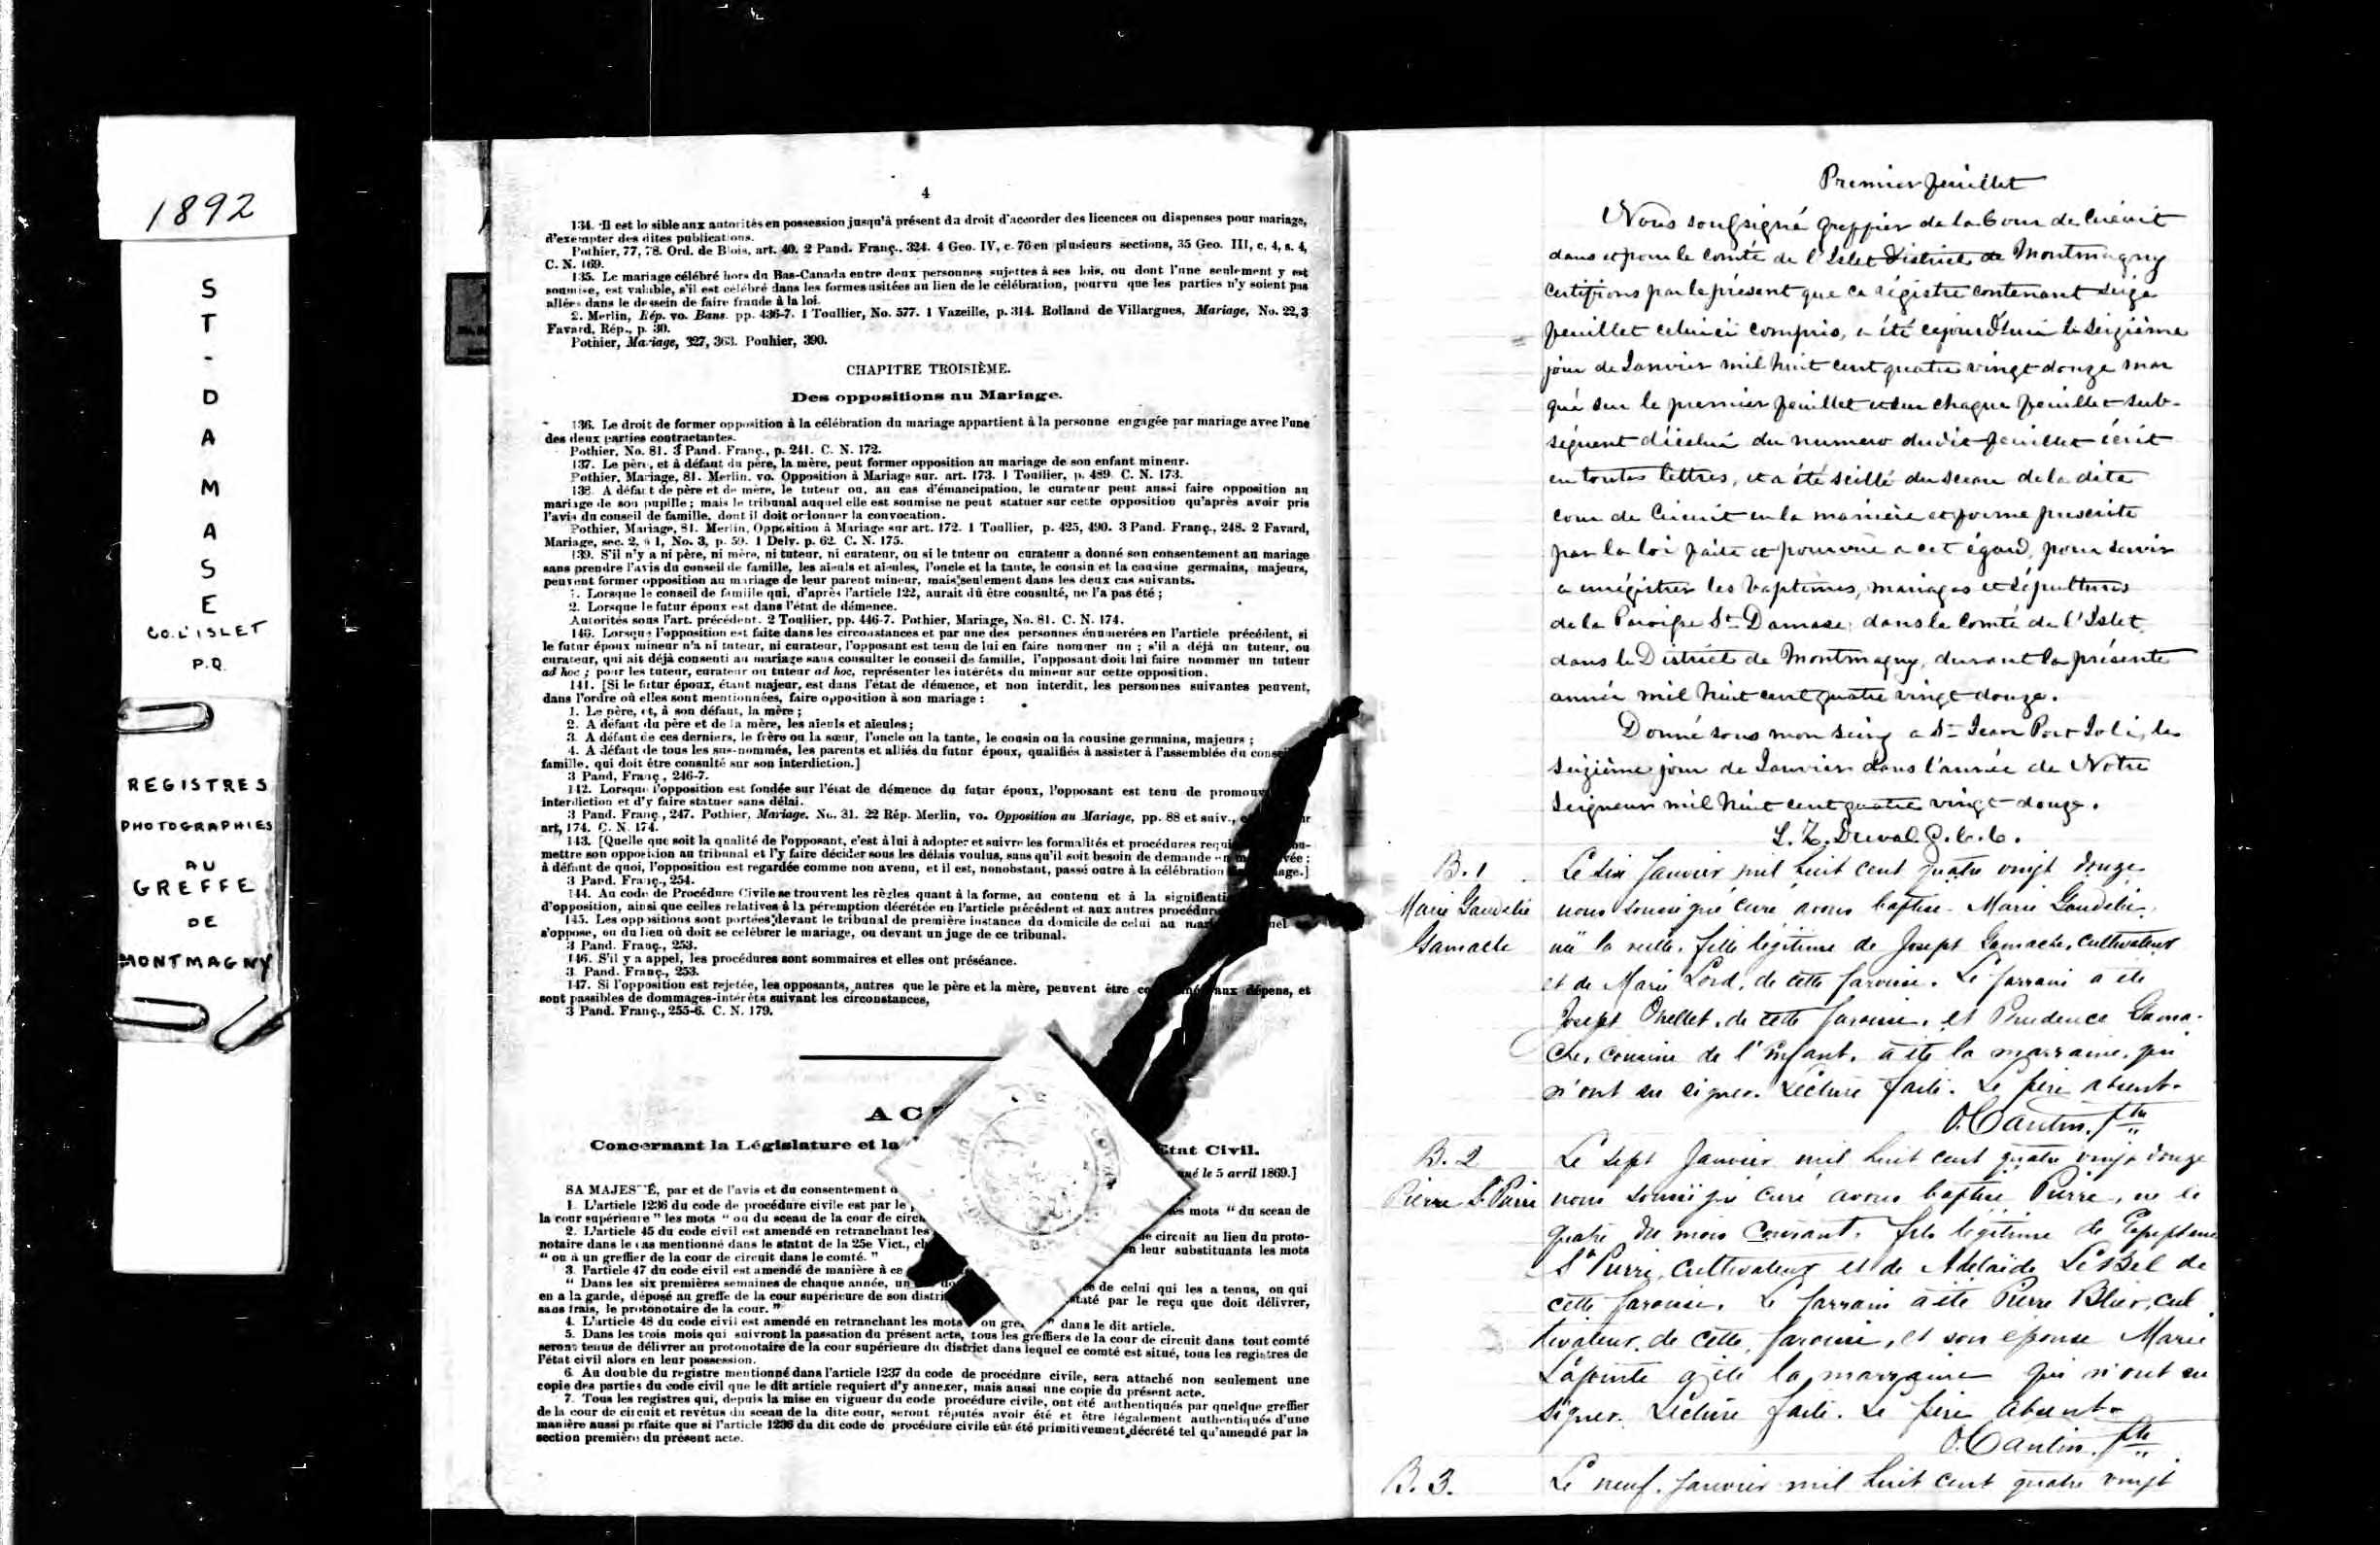 1892
ST-DAMASE
CO. L'ISLET
P.Q.
REGISTRES
PHOTOGRAPHIES
AU
GREFFE
DE
MONTMAGNY
4
134. Il est loisible aux autorités en possession jusqu'à présent du droit d'accorder des licences ou dispenses pour mariage,
d'exempter des dites publications.
Pothier, 77, 78. Ord. de Blois, art. 40. 2 Pand. Franç., 324. 4 Geo. IV, c. 76 en plusieurs sections, 35 Geo. III, c. 4, s. 4,
C. N. 169.
135. Le mariage célébré hors du Bas-Canada entre deux personnes sujettes à ses lois, ou dont l'une seulement y est
soumise, est valable, s'il est célébré dans les formes usitées au lien de le célébration, pourvu que les parties n'y soient pas
allées dans le dessein de faire fraude à la loi.
2. Merlin, Rép. vo. Bans. pp. 436-7. 1 Toullier, No. 577. 1 Vazeille, p. 314. Rolland de Villargues, Mariage, No. 22, 3
Favard, Rép., p. 30.
Pothier, Mariage, 327, 363. Pouhier, 390.
CHAPITRE TROISIÈME.
Des oppositions au Mariage.
136. Le droit de former opposition à la célébration du mariage appartient à la personne engagée par mariage avec l'une
des deux parties contractantes.
Pothier, No. 81. 3 Pand. Franç., p. 241. C. N. 172.
137. Le père, et à défaut du père, la mère, peut former opposition au mariage de son enfant mineur.
Pothier, Mariage, 81. Merlin. vo. Opposition à Mariage sur. art. 173. 1 Toullier, p. 489. C. N. 173.
138. A défaut de père et de mère, le tuteur ou, au cas d'émancipation, le curateur peut aussi faire opposition au
mariage de son pupille ; mais le tribunal auquel elle est soumise ne peut statuer sur cette opposition qu'après avoir pris
l'avis du conseil de famille, dont il doit ordonner la convocation.
Pothier, Mariage, 81. Merlin, Opposition à Mariage sur art. 172. 1 Toullier, p. 425, 490. 3 Pand. Franç., 248. 2 Favard,
Mariage, sec. 2, § 1, No. 3, p. 59. 1 Delv. p. 62. C. N. 175.
139. S'il n'y a ni père, ni mère, ni tuteur, ni curateur, ou si le tuteur ou curateur a donné son consentement au mariage
sans prendre l'avis du conseil de famille, les aieuls et aieules, l'oncle et la tante, le cousin et la cousine germains, majeurs,
peuvent former opposition au mariage de leur parent mineur, mais seulement dans les deux cas suivants.
1. Lorsque le conseil de famille qui, d'après l'article 122, aurait dû être consulté, ne l'a pas été ;
2. Lorsque le futur époux est dans l'état de démence.
Autorités sous l'art. précédent. 2 Toullier, pp. 446-7. Pothier, Mariage, No. 81. C. N. 174.
140. Lorsque l'opposition est faite dans les circonstances et par une des personnes énumerées en l'article précédent, si
le futur époux mineur n'a ni tuteur, ni curateur, l'opposant est tenu de lui en faire nommer un ; s'il a déjà un tuteur, ou
curateur, qui ait déjà consenti au mariage sans consulter le conseil de famille, l'opposant doit lui faire nommer un tuteur
ad hoc ; pour les tuteur, curateur ou tuteur ad hoc, représenter les intérêts du mineur sur cette opposition.
141. [Si le futur époux, étant majeur, est dans l'état de démence, et non interdit, les personnes suivantes peuvent,
dans l'ordre où elles sont mentionnées, faire opposition à son mariage :
1. Le père, et, à son défaut, la mère ;
2. A défaut du père et de la mère, les aieuls et aieules ;
3. A défaut de ces derniers, le frère ou la sœur, l'oncle ou la tante, le cousin ou la cousine germains, majeurs ;
4. A défaut de tous les sus-nommés, les parents et alliés du futur époux, qualifiés à assister à l'assemblée du conse
famille, qui doit être consulté sur son interdiction.]
3 Pand, Franç, 246-7.
142. Lorsque l'opposition est fondée sur l'état de démence du futur époux, l'opposant est tenu de promouv
interdiction et d'y faire statuer sans délai.
3 Pand. Franç., 247. Pothier, Mariage. No. 31. 22 Rép. Merlin, vo. Opposition au Mariage, pp. 88 et suiv.,
art, 174. C. N. 174.
143. [Quelle que soit la qualité de l'opposant, c'est à lui à adopter et suivre les formalités et procédures requi ou-
mettre son opposition au tribunal et l'y faire décider sous les délais voulus, sans qu'il soit besoin de demande en vée ;
à défaut de quoi, l'opposition est regardée comme non avenu, et il est, nonobstant, passé outre à la célébration age.]
3 Pand. Franç., 254.
144. Au code de Procédure Civile se trouvent les règles quant à la forme, au contenu et à la significati
d'opposition, ainsi que celles relatives à la péremption décrétée en l'article précédent et aux autres procédur
145. Les oppositions sont portées devant le tribunal de première instance du domicile de celui au mar nel
s'oppose, ou du lieu où doit se célébrer le mariage, ou devant un juge de ce tribunal.
3 Pand. Franç., 253.
146. S'il y a appel, les procédures sont sommaires et elles ont préséance.
3. Pand. Franç., 253.
147. Si l'opposition est rejetée, les opposants, autres que le père et la mère, peuvent être co aux dépens, et
sont passibles de dommages-intérêts suivant les circonstances,
3 Pand. Franç., 255-6. C. N. 179.
AC
Concernant la Législature et la Etat Civil.
né le 5 avril 1869.]
SA MAJESTÉ, par et de l'avis et du consentement d
1. L'article 1236 du code de procédure civile est par le les mots " du sceau de
la cour supérieure " les mots " ou du sceau de la cour de circ
2. L'article 45 du code civil est amendé en retranchant les de circuit au lieu du proto-
notaire dans le cas mentionné dans le statut de la 25e Vict., ch n leur substituants les mots
" ou à un greffier de la cour de circuit dans le comté. "
3. l'article 47 du code civil est amendé de manière à ce
" Dans les six premières semaines de chaque année, un do de celui qui les a tenus, ou qui
en a la garde, déposé au greffe de la cour supérieure de son distri staté par le reçu que doit délivrer,
sans frais, le protonotaire de la cour. "
4. L'article 48 du code civil est amendé en retranchant les mots ou gre " dans le dit article.
5. Dans les trois mois qui suivront la passation du présent acte, tous les greffiers de la cour de circuit dans tout comté
seront tenus de délivrer au protonotaire de la cour supérieure du district dans lequel ce comté est situé, tous les registres de
l'état civil alors en leur possession.
6. Au double du registre mentionné dans l'article 1237 du code de procédure civile, sera attaché non seulement une
copie des parties du code civil que le dit article requiert d'y annexer, mais aussi une copie du présent acte.
7. Tous les registres qui, depuis la mise en vigueur du code procédure civile, ont été authentiqués par quelque greffier
de la cour de circuit et revêtus du sceau de la dite cour, seront réputés avoir été et être légalement authentiqués d'une
manière aussi parfaite que si l'article 1236 du dit code de procédure civile eût été primitivement décrété tel qu'amendé par la
section première du présent acte.
Premier feuillet
Nous soussigné greffier de la Cour de Circuit
dans et pour le Comté de l'Islet District de Montmagny
Certifions par le présent que ce régistre contenant seize
feuillet celui ci compris, a été cejourdhui le seizième
jour de Janvier mil huit cent quatre vingt douze mar
qué sur le premier feuillet et sur chaque feuillet sub-
séquent d'icelui du numero dudit feuillet écrit
en toutes lettres, et a été scéllé du sceau de la dite
cour de Circuit en la maniere et forme prescrite
par la loi faite et pourvue a cet égard, pour servir
a enrégistrer les baptêmes, mariages et sépultures
de la Paroisse St Damase dans le Comté de l'Islet
dans le District de Montmagny, durant la présente
année mil huit cent quatre vingt douze.
Donné sous mon seing a St Jean Port Joli, le
seizième jour de Janvier dans l'année de Notre
Seigneur mil huit cent quatre vingt douze.
L. Z. Duval G. C. C.
B. 1
Marie Gaudelie
Gamache
Le six Janvier mil huit cent quatre vingt douze
nous soussigné curé avons baptisé Marie Gaudelie,
née la veille, fille légitime de Joseph Gamache, cultivateur
et de Marie Lord, de cette paroisse. Le parrain a été
Joseph Ouellet, de cette paroisse, et Prudence Gama-
che, cousine de l'enfant, a été la marraine, qui
n'ont su signer. Lecture faite. Le père absent.
O. Cantin, Ptre
B. 2
Pierre St Pierre
Le sept Janvier mil huit cent quatre vingt douze
nous soussigné curé avons baptisé Pierre, né le
quatre du mois courant, fils légitime de
St Pierre, cultivateur et de Adelaïde de
cette paroisse. Le parrain a été Pierre Blier, cul
tivateur, de cette paroisse, et son épouse Marie
Lapointe a été la marraine qui n'ont su
signer. Lecture faite. Le père absent
O. Cantin, Ptre
B. 3.
Le neuf Janvier mil huit cent quatre vingt